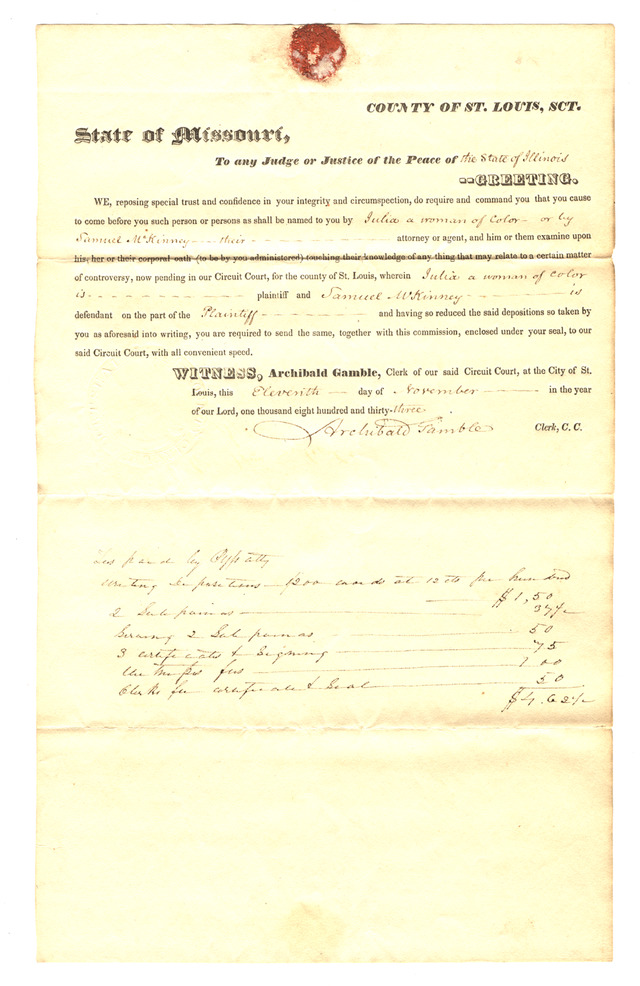 COUNTY OF ST. LOUIS, SCT.
State of Missouri,
To any Judge or Justice of the Peace of the State of Illinois
--GREETING.
WE, reposing special trust and confidence in your integrity and circumspection, do require and command you that you cause
to come before you such person or persons as shall be named to you by Julia a woman of Color - or by
Samuel McKinney - - their - - - attorney or agent, and him or them examine upon
his, her or their corporal oath (to be by you administered) touching their knowledge of any thing that may relate to a certain matter
of controversy, now pending in our Circuit Court, for the county of St. Louis, wherein Julia a woman of Color
is - - - plaintiff and Samuel McKinney - - - is
defendant on the part of the Plaintiff - - - and having so reduced the said depositions so taken by
you as aforesaid into writing, you are required to send the same, together with this commission, enclosed under your seal, to our
said Circuit Court, with all convenient speed.
WITNESS, Archibald Gamble, Clerk of our said Circuit Court, at the City of St.
Louis, this Eleventh - day of November - - in the year
of our Lord, one thousand eight hundred and thirty-three.
Archibald Gamble Clerk, C. C.
by Plffs atty
writing Depositions - 1200 words at 12 cts per hundred
$1,50
2 Subpoenas - 37½
Serving 2 Subpoenas - 50
3 certificates & Signing - 75
fees - 1 00
Clerks fee certificate & Seal - 50
$4.62½